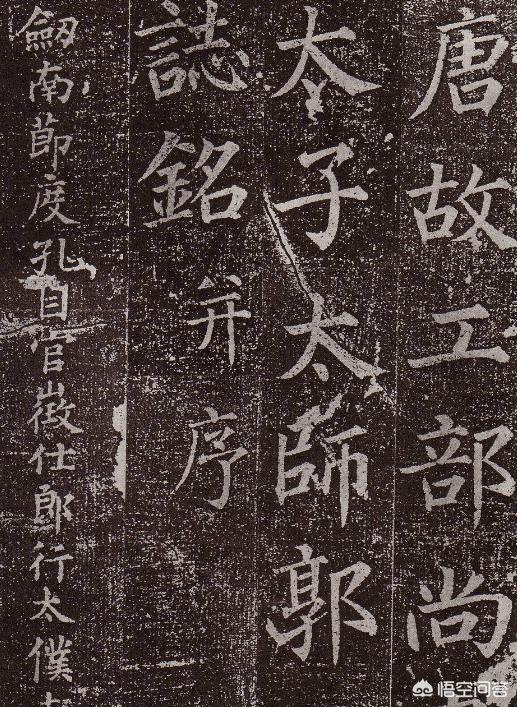 唐故工部尚
太子太師郭
誌銘并序
劒南節度孔目官徵仕郎行太僕
悟空问答